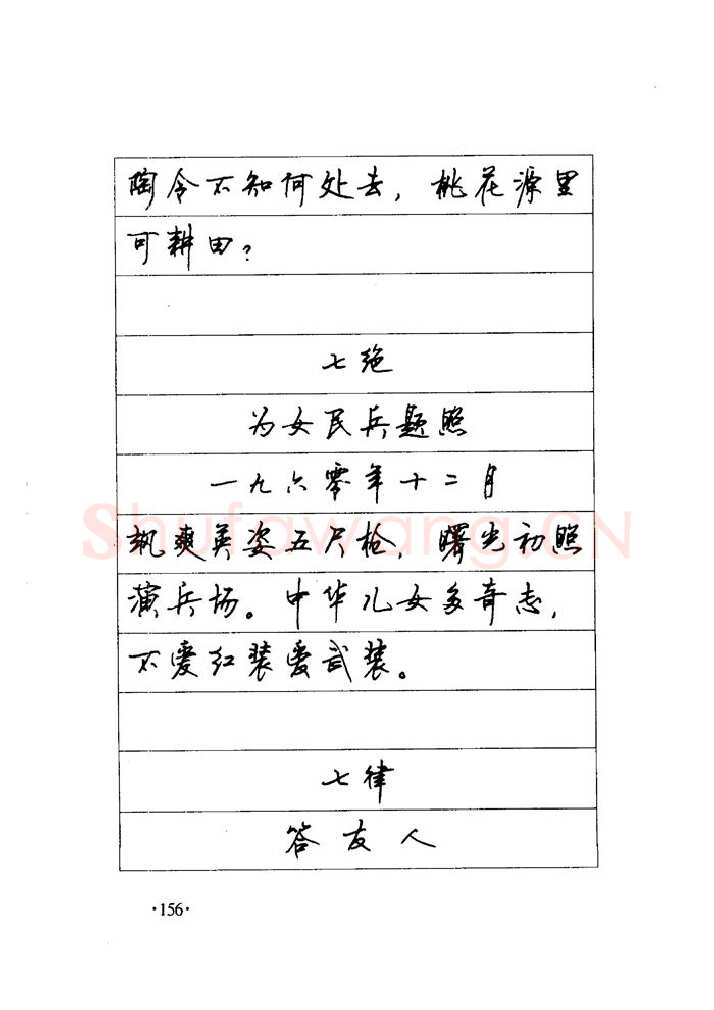 陶令不知何处去，桃花源里
可耕田？
七绝
为女民兵题照
一九六零年十二月
飒爽英姿五尺枪，曙光初照
演兵场。中华儿女多奇志，
不爱红装爱武装。
七律
答友人
·156·
Shufawang.CN